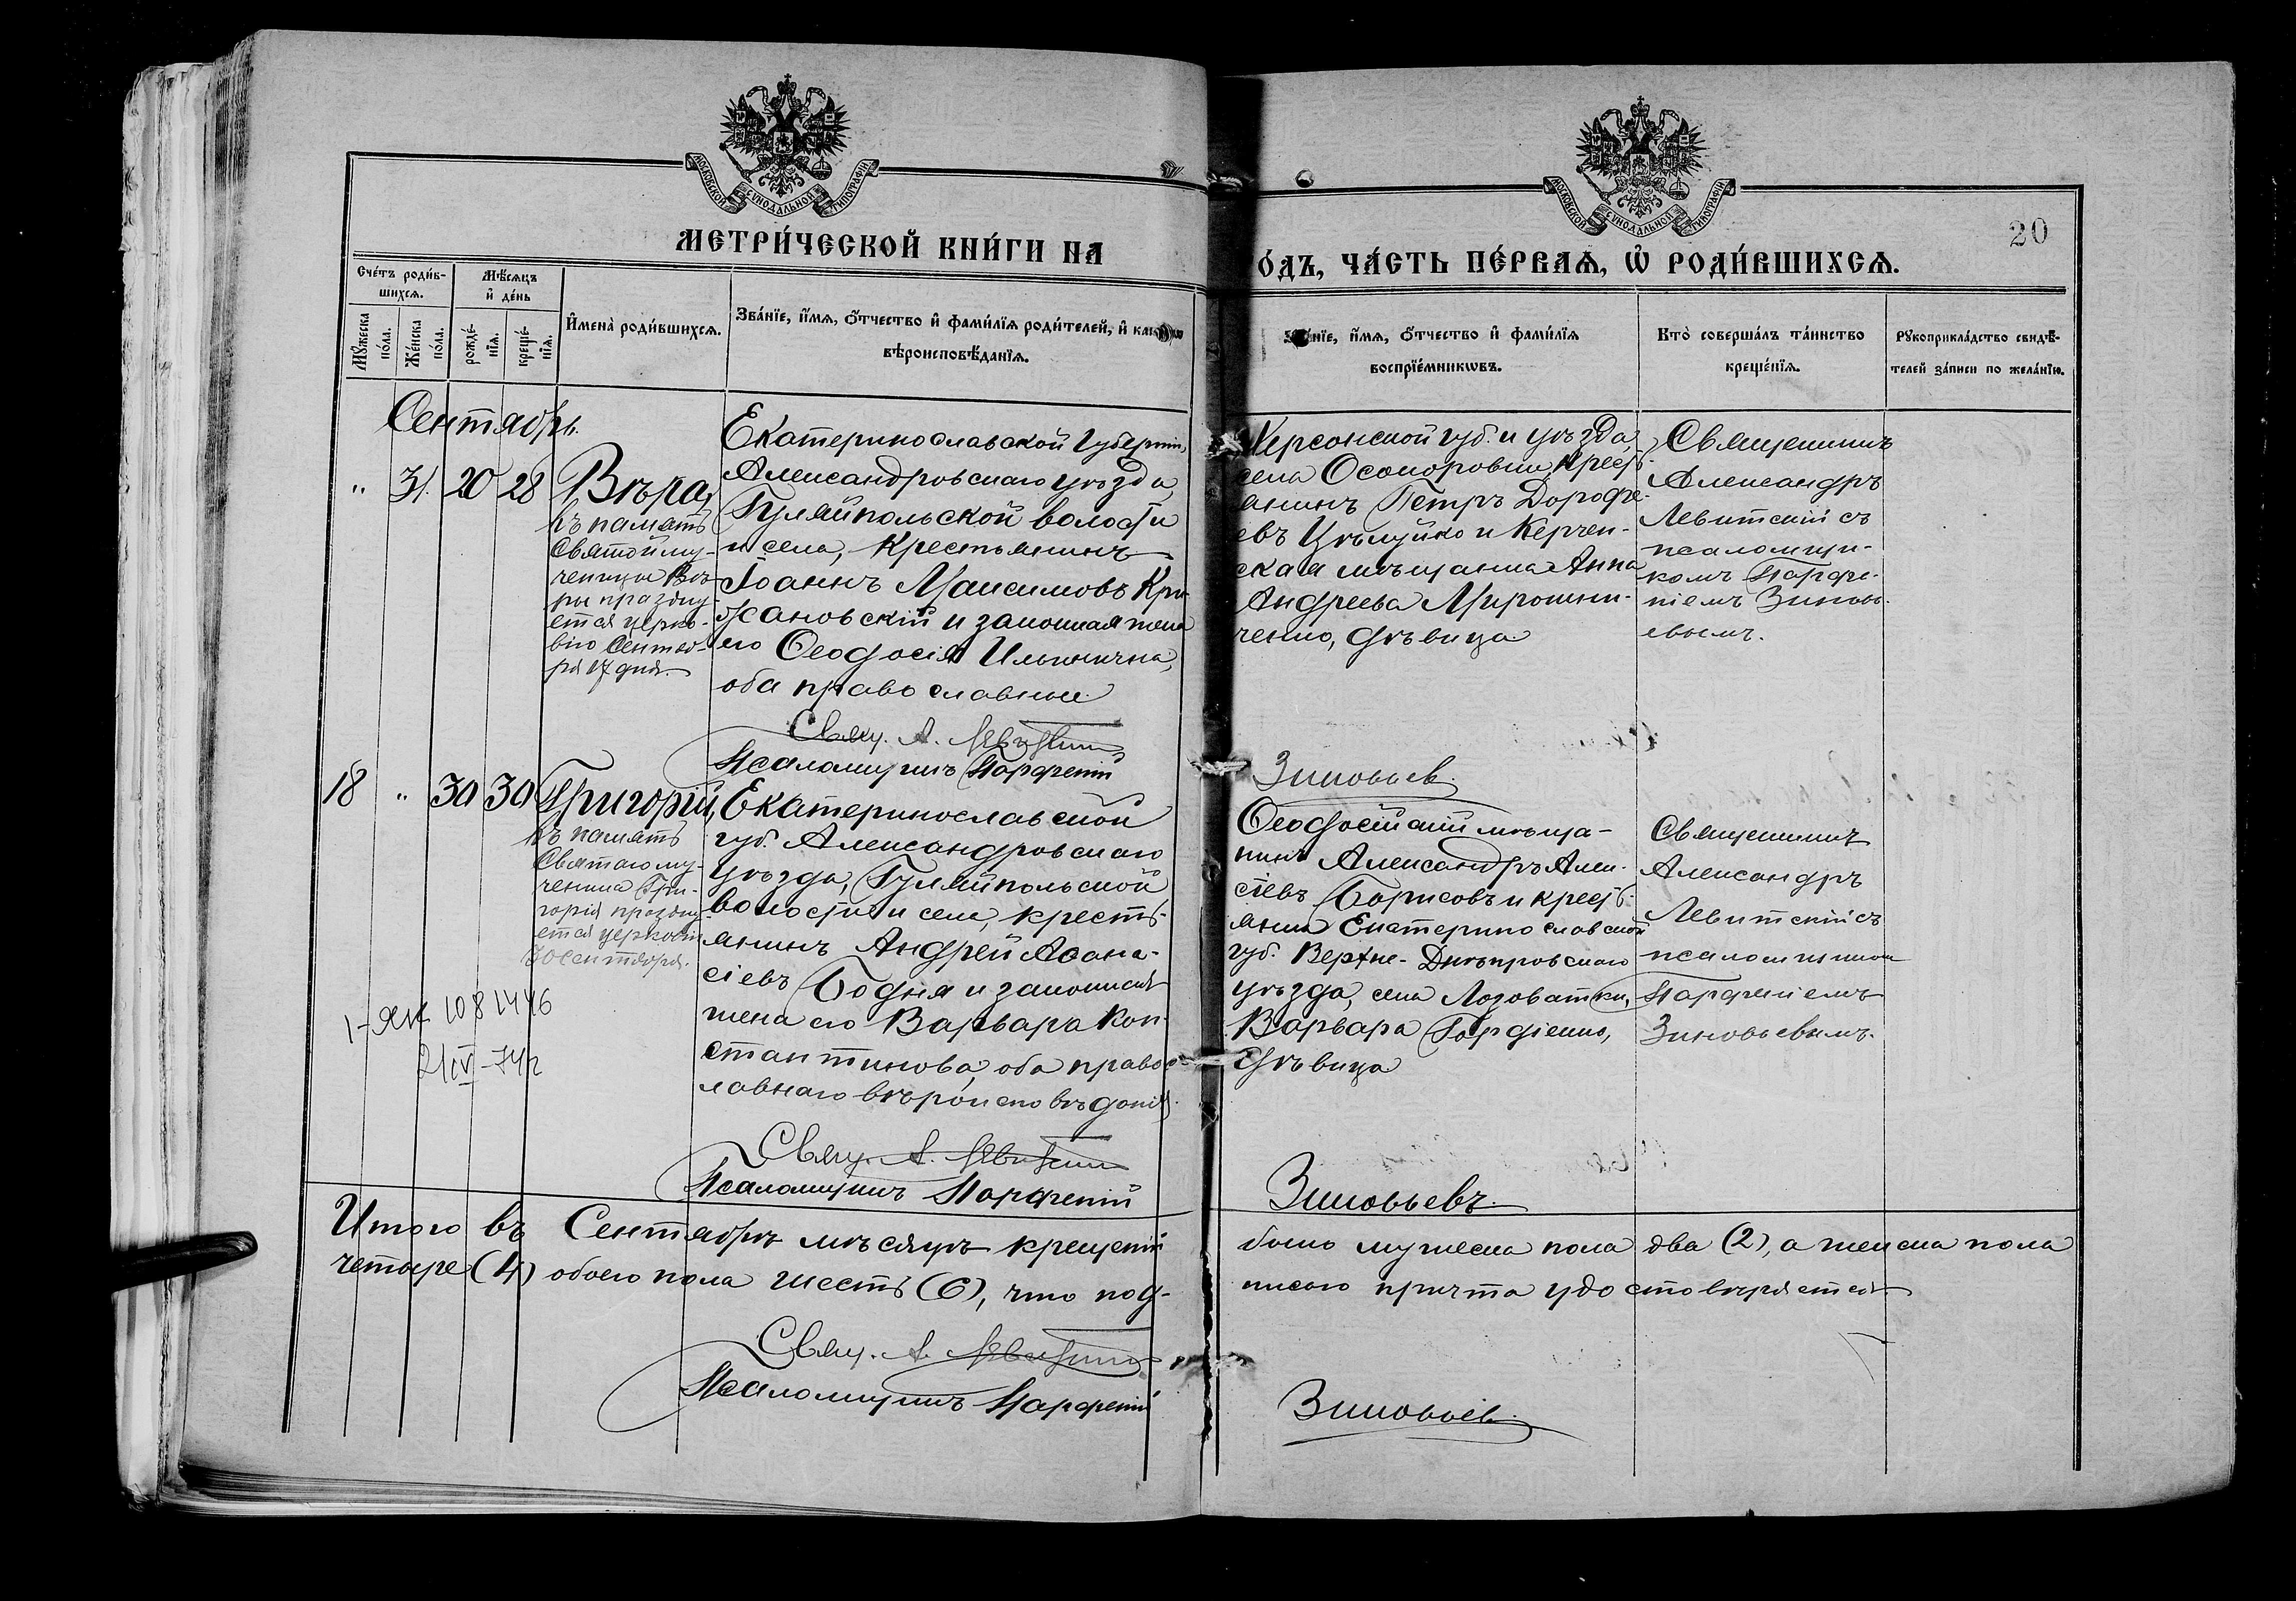 МОСКОВСКОЙ СѴНОДАЛЬНОЙ ТИПОГРАФІИ
МОСКОВСКОЙ СѴНОДАЛЬНОЙ ТИПОГРАФІИ
20
МЕТРИ́ЧЕСКОЙ КНИ́ГИ НА
О́ДЪ, ЧА́СТЬ ПЕ́РВАѦ, Ѡ҆ РОДИ́ВШИХСѦ.
Сче́тъ роди́в-
шихсѧ.
Мѣ́сѧцъ
и҆ де́нь
Мꙋ́жеска
по́ла.
Же́нска
по́ла.
рожде́-
нїѧ.
креще́-
нїѧ.
И҆мена̀ роди́вшихсѧ.
Зва́нїе, и҆́мѧ, ѻ҆́тчество и҆ фами́лїѧ роди́телей, и҆
вѣроисповѣ́данїѧ.
и҆́мѧ, ѻ҆́тчество и҆ фами́лїѧ
воспрїе́мникѡвъ.
Кто̀ соверша́лъ та́инство
креще́нїѧ.
Рꙋкоприкла́дство свидѣ́-
телей за́писи по жела́нїю.
Сентябрь.
" 31. 20 28
Вѣра,
въ память
Святой му-
ченицы Вѣ-
ры праздну-
ется церко-
вію Сентяб-
ря 17 дня.
Екатеринославской Губерніи,
Александровскаго уѣзда,
Гуляйпольской волости
и села, крестьянинъ
Іоаннъ Максимовъ Кри-
жановскій и законная жена
его Ѳеодосія Ильинична,
оба православные.
Свящ. А. Левитскій
Псаломщикъ Парфеній
Херсонской губ. и уѣзда,
села крест-
янинъ Петръ Дорофе-
евъ Цѣлуйко и Керчен-
ская мѣщанка Анна
Андреева Мирошни-
ченко, дѣвица
Зиновьев.
Священникъ
Александръ
Левитскій съ
псаломщи-
комъ Парфе-
ніемъ Зиновь-
евымъ.
18 " 30 30
Григорій,
въ память
Святаго му-
ченика Гри-
горія праздну-
ется церковію
30 сентября.
1-ЯК 1081446
21/IV-74г
Екатеринославской
губ. Александровскаго
уѣзда, Гуляйпольской
волости и села, кресть-
янинъ Андрей Аѳана-
сіевъ Бодня и законная
жена его Варвара Кон-
стантинова, оба право-
лавнаго вѣроисповѣданія.
Свящ. А. Левитскій
Псаломщикъ Парфеній
Ѳеодосійскій мѣща-
нинъ Александръ Алек-
сіевъ Борисовъ и крест-
янка Екатеринославской
губ. Верхне-Днѣпровскаго
уѣзда, села Лозоватки,
Варвара Гордіенко,
дѣвица
Зиновьевъ.
Священникъ
Александръ
Левитскій съ
псаломщиком
Парфеніемъ
Зиновьевымъ.
Итого въ Сентябрѣ мѣсяцѣ крещеній было мужеска пола два (2), а женска пола
четыре (4) обоего пола шесть (6), что под- писью причта удостовѣряется
Свящ. А. Левитскій
Псаломщикъ Парфеній
Зиновьев.